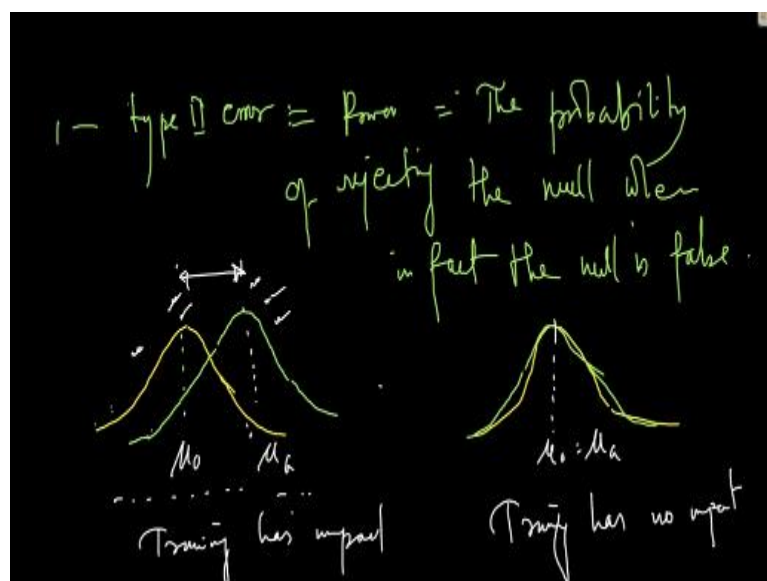 1 - type II error = Power = The probability
of rejecting the null when
in fact the null is false.
μ0 μa
μ0 = μa
Training has impact
Training has no impact